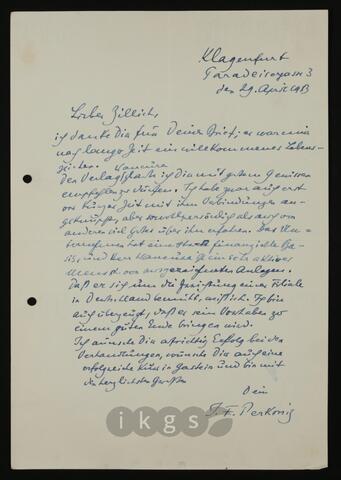 Klagenfurt
Paradeisergasse 3
den 29. April 1953
Lieber Zillich,
ich danke Dir für Deinen Brief, es war mir
nach langer Zeit ein willkommenes Lebens-
zeichen.
Den Verlag kann ich Dir mit gutem Gewissen
empfehlen. Ich habe zwar auch erst
vor kurzer Zeit mit ihm Verbindungen an-
geknüpft, aber sowohl persönlich als auch von
anderen viel Gutes über ihn erfahren. Das Un-
ternehmen hat eine starke finanzielle Ba-
sis, und Herr ist ein sehr aktiver
Mensch von ausgezeichneten Anlagen.
Daß er sich um die Errichtung einer Filiale
in Deutschland bemüht, Ich bin
auch überzeugt, daß er sein Vorhaben zu
einem guten Ende bringen wird.
Ich wünsche Dir aufrichtig Erfolg bei den
Verhandlungen, wünsche Dir auch eine
erfolgreiche Kur in Gastein und bin mit
den herzlichsten Grüßen
Dein
J. F. Perkonig
ikgs